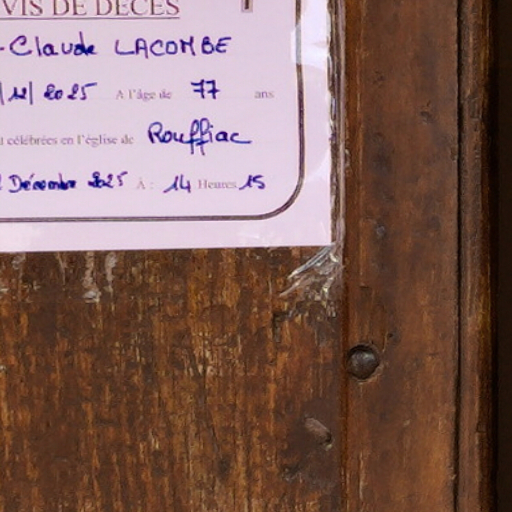 VIS DE DÉCÈS
-Claude LACOMBE
/12/2025 A l'âge de 77 ans
célébrées en l'église de Rouffiac
Décembre 2025 À : 14 Heures 15